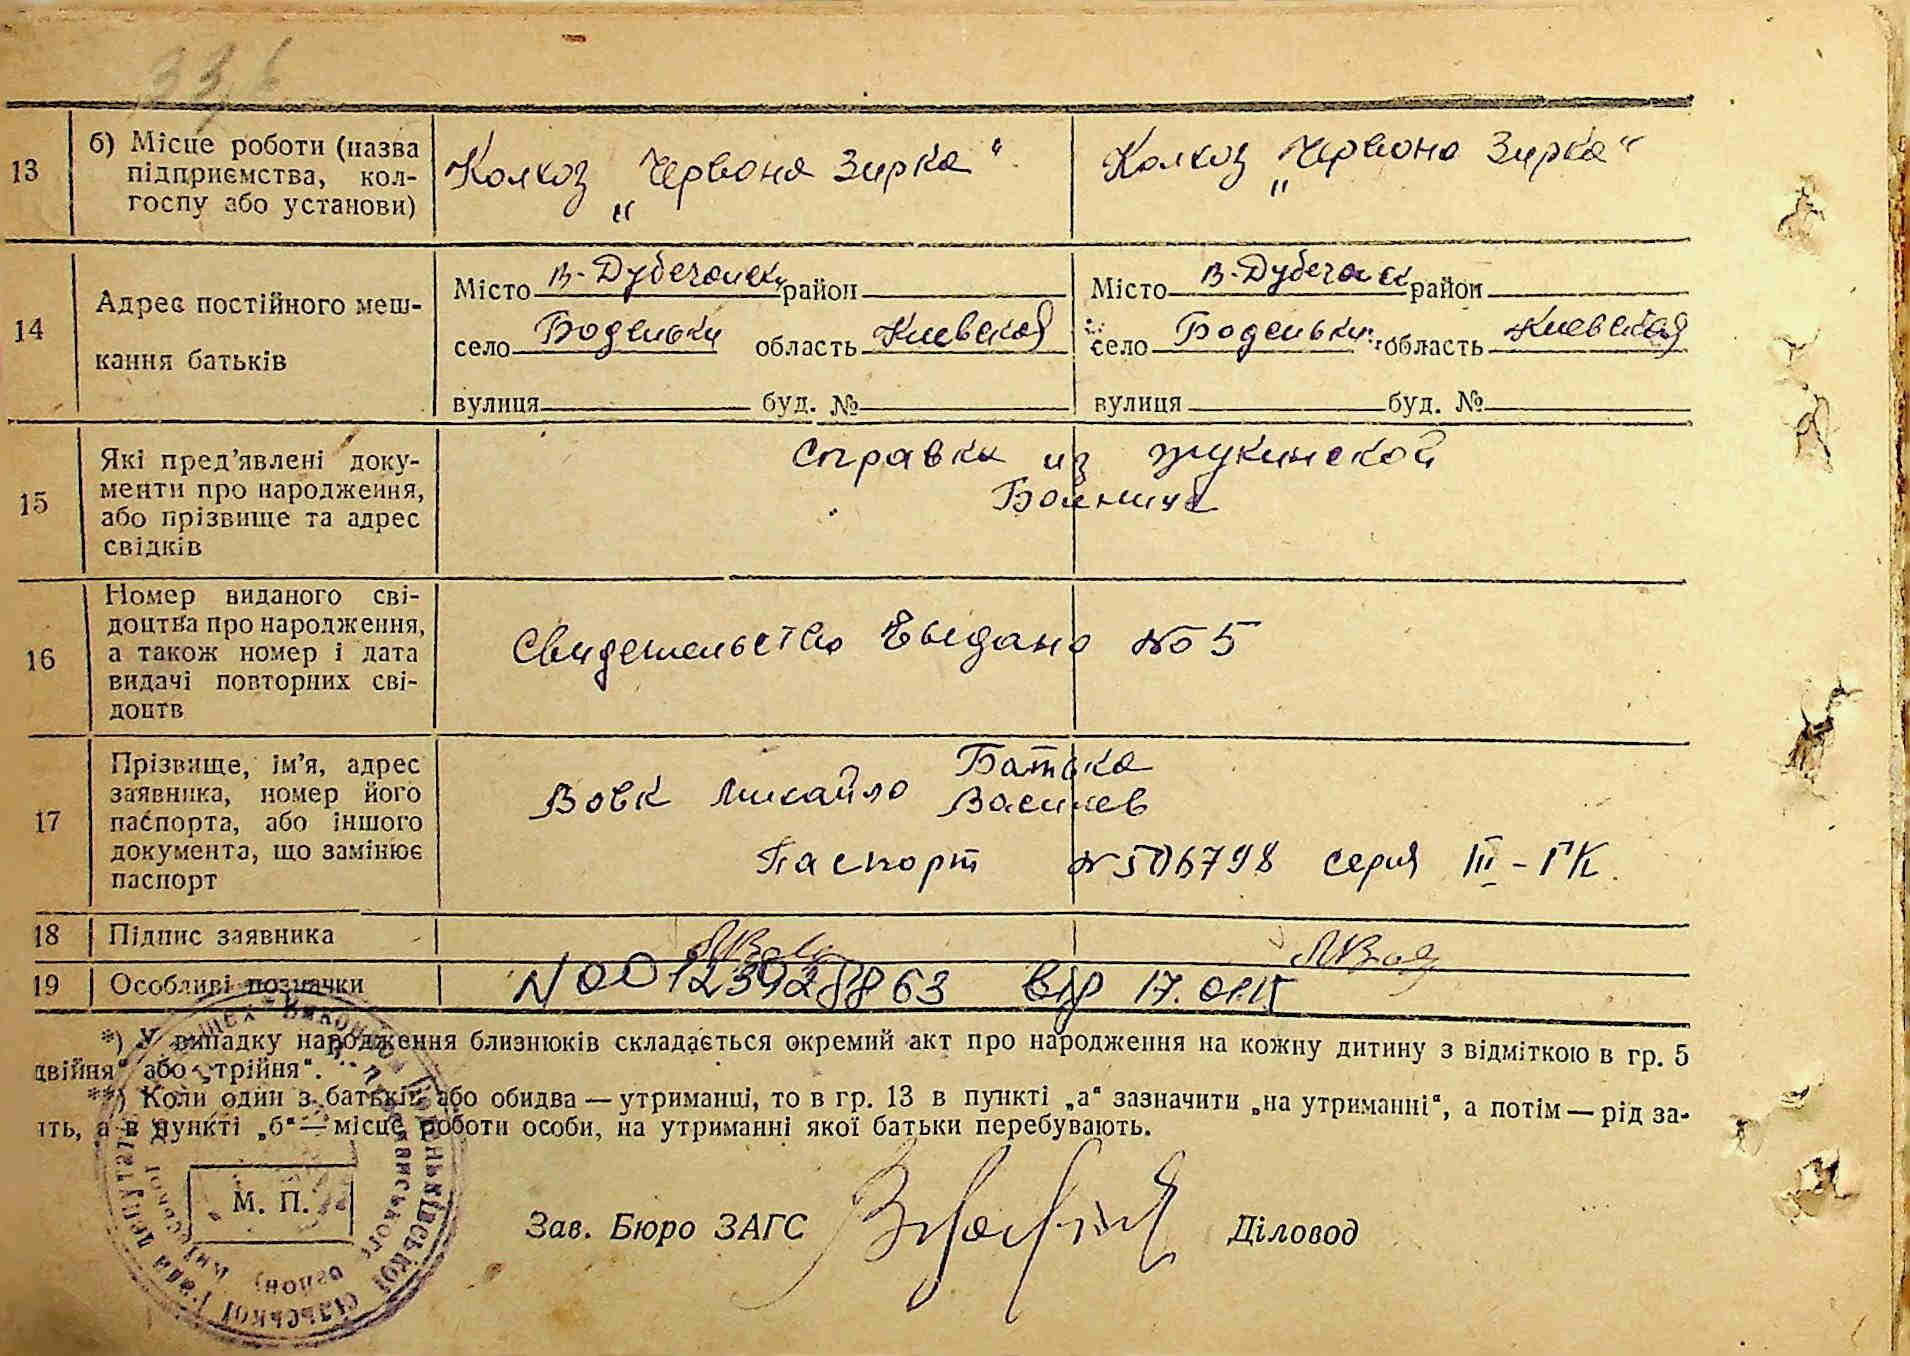 33,6
13 б) Місце роботи (назва підприємства, колгоспу або установи)
Колхоз „Червона Зирка“
Колхоз „Червона Зирка“
14 Адрес постійного мешкання батьків
Місто В-Дубечански район
село Боденьки область Киевской
вулиця буд. №
Місто В-Дубечанск район
село Боденьки область Киевской
вулиця буд. №
15 Які пред’явлені документи про народження, або прізвище та адрес свідків
Справка из жукинской
Больници
16 Номер виданого свідоцтва про народження, а також номер і дата видачі повторних свідоцтв
Свидетельство Выдано № 5
17 Прізвище, ім’я, адрес заявника, номер його паспорта, або іншого документа, що замінює паспорт
Батька
Вовк Михайло Василев
Паспорт № 506798 серия III - ГК.
18 Підпис заявника
19 Особливі позначки
N00123928863 від 17.01.15
*) У випадку народження близнюків складається окремий акт про народження на кожну дитину з відміткою в гр. 5
двійня“ або „трійня“.
**) Коли один з батьків або обидва — утриманці, то в гр. 13 в пункті „а“ зазначити „на утриманні“, а потім — рід за-
ять, а в пункті „б“ — місце роботи особи, на утриманні якої батьки перебувають.
М. П.
Зав. Бюро ЗАГС
Діловод